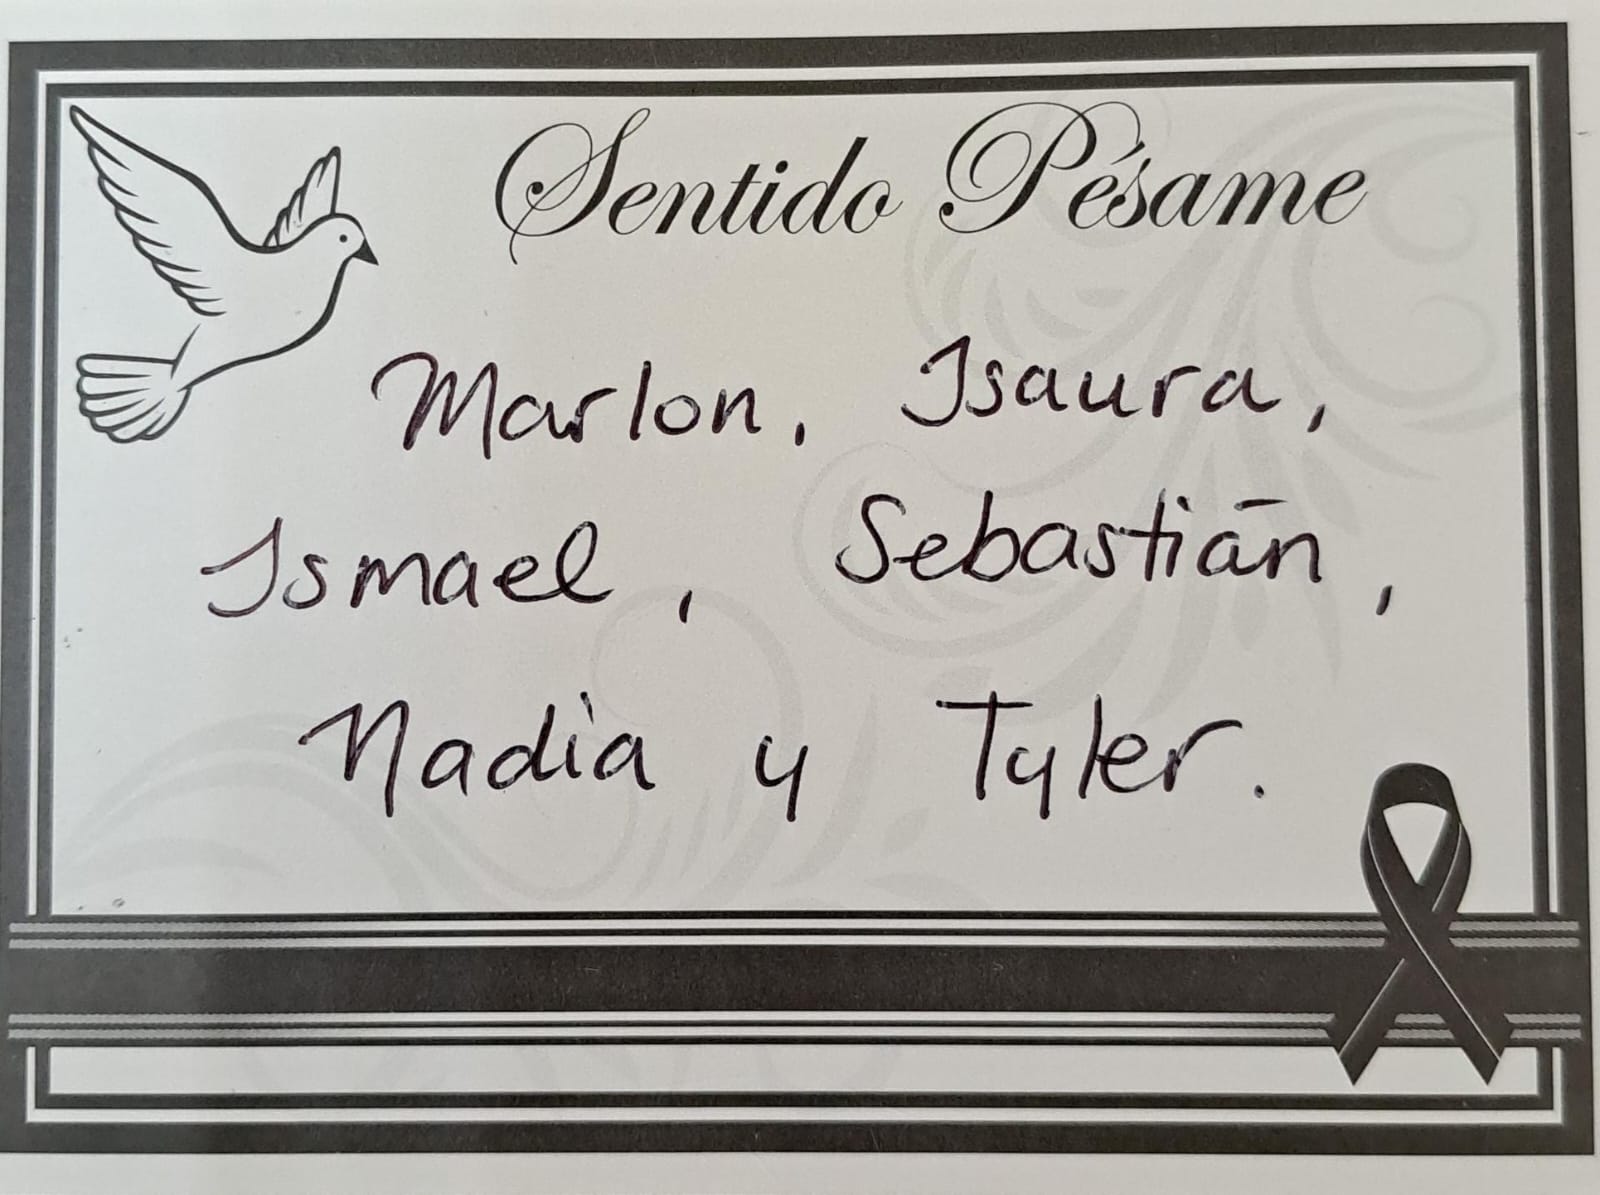 Sentido Pésame
Marlon, Isaura,
Ismael, Sebastián,
Nadia y Tyler.